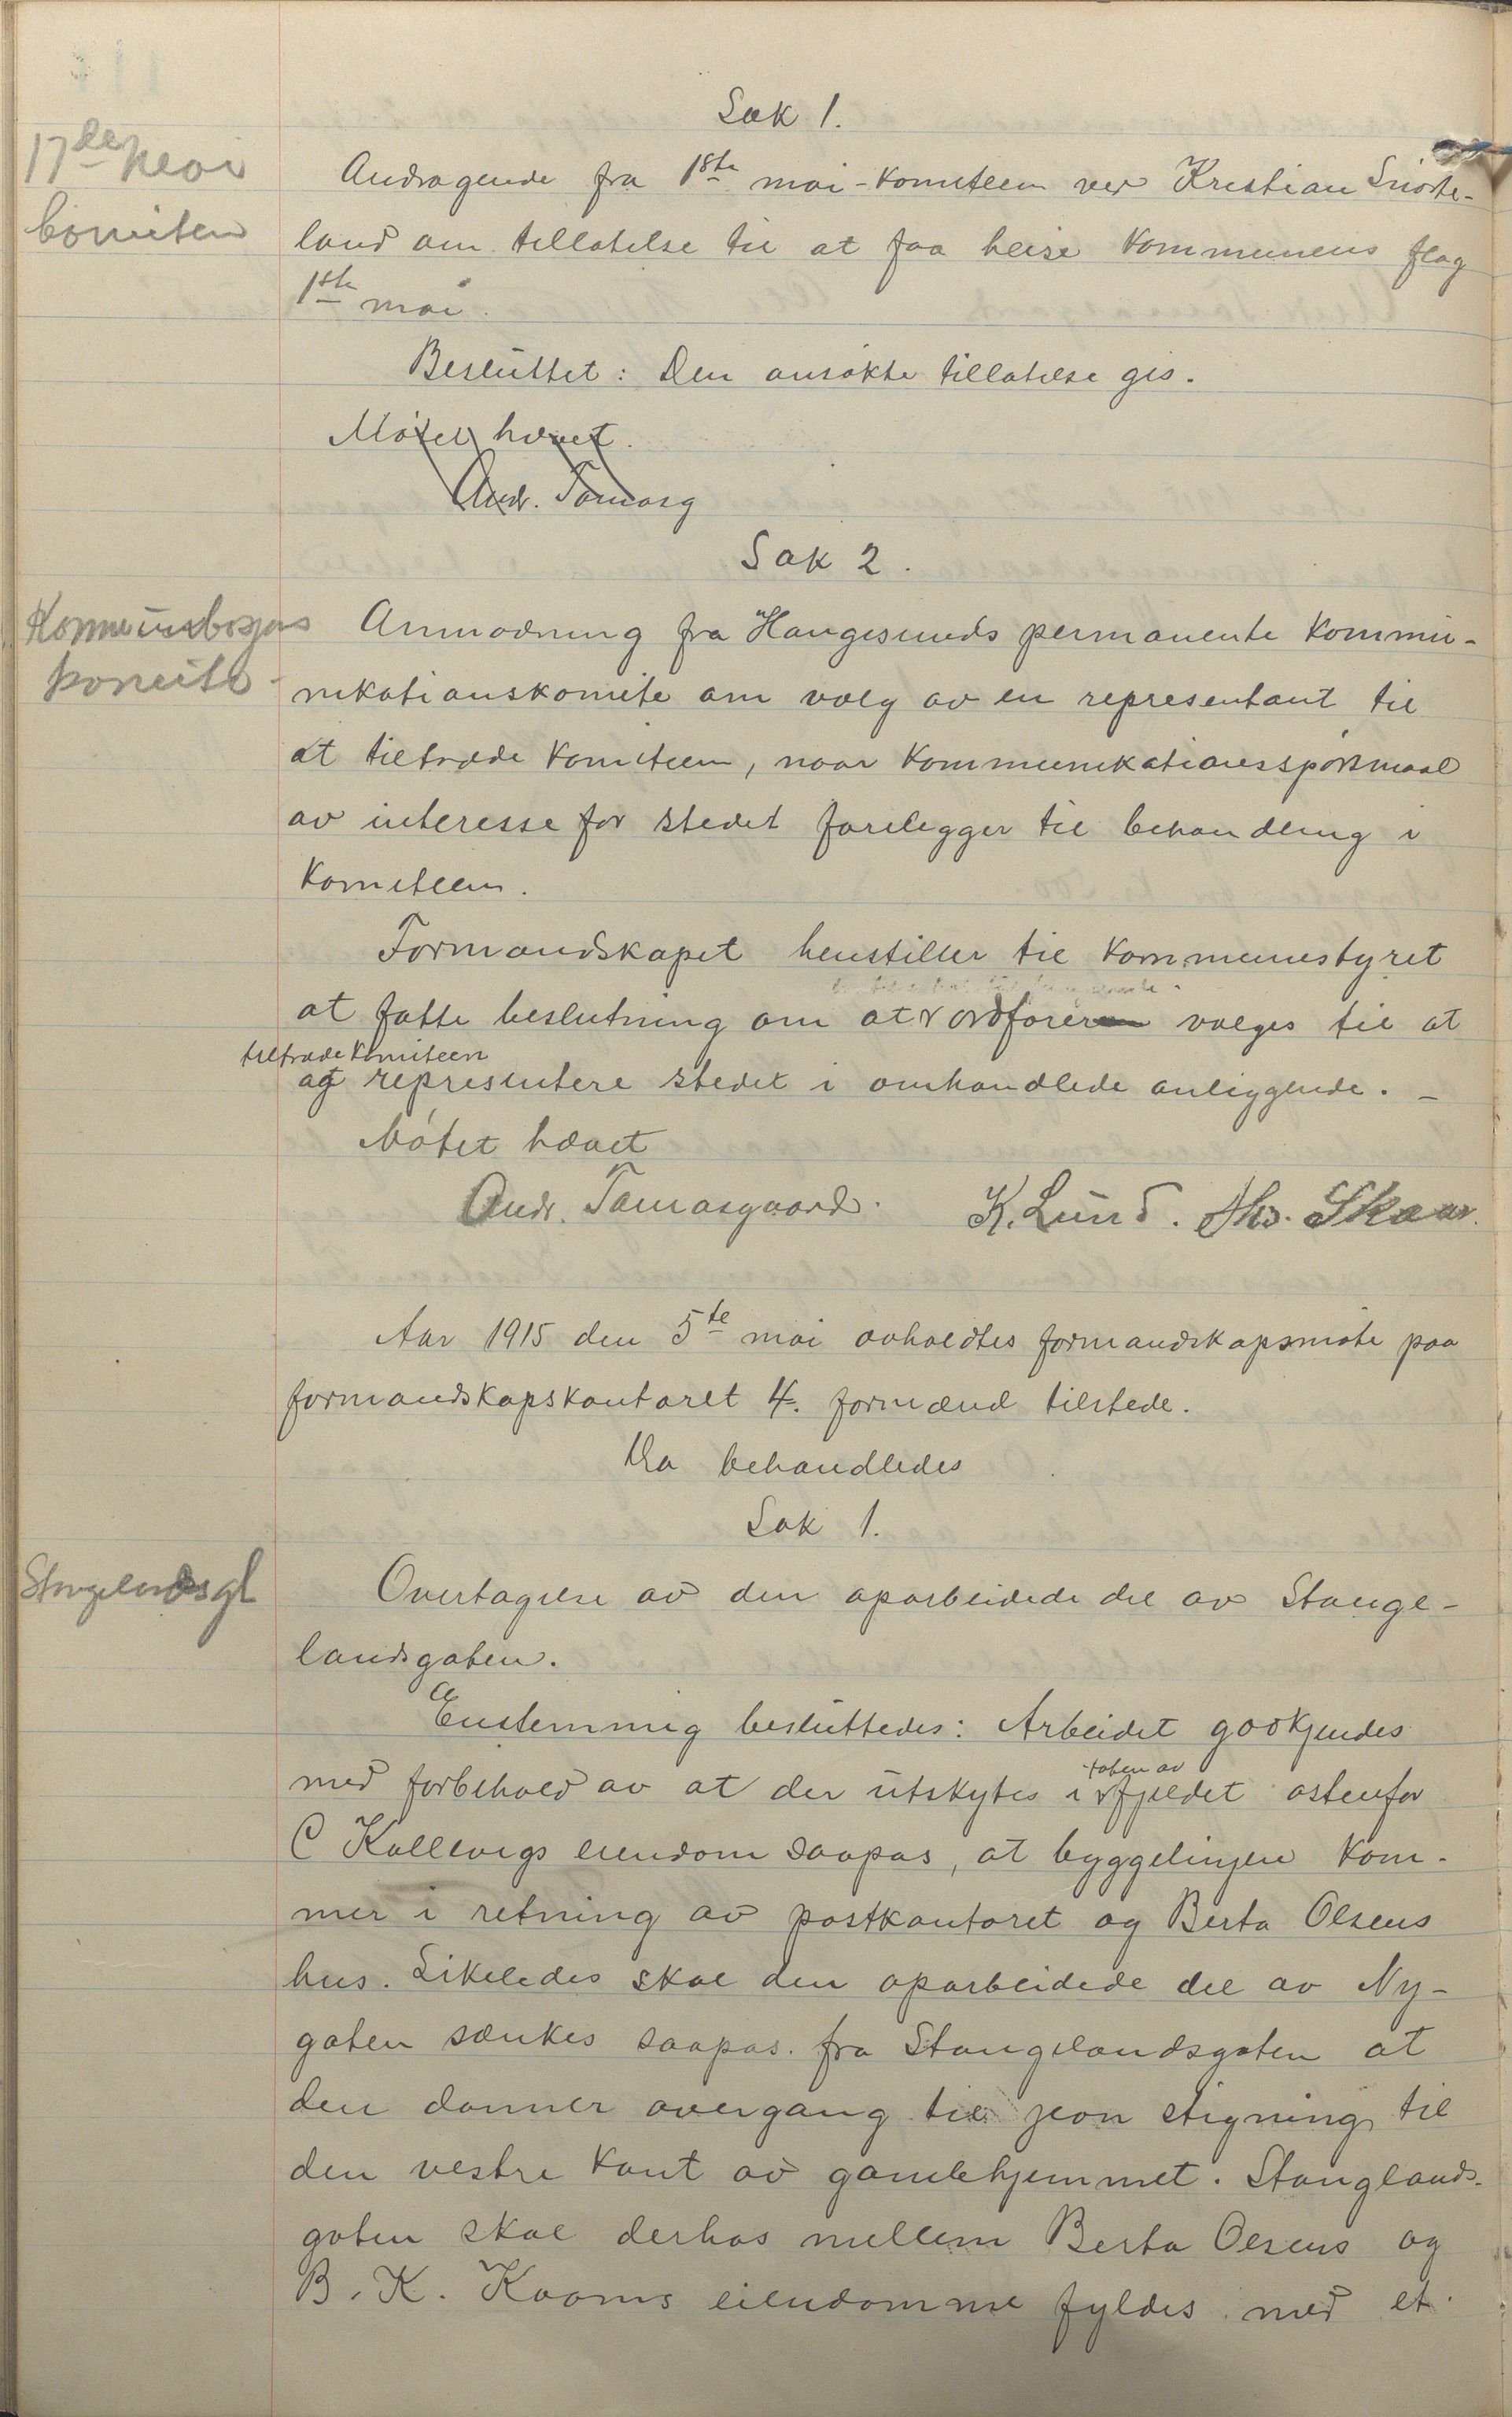 Sak 1.
17de mai
komiteen
Andragende fra 1ste mai-komiteen ved Kristian Snorte-
land om tillatelse til at faa heise kommunens flag
1ste mai.
Besluttet: Den ansøkte tillatelse gis.
Møtet hævet.
Andr. Tomasg
Sak 2.
komite
Anmodning fra Haugesunds permanente kommu-
nikationskomite om valg av en representant til
at tiltræde komiteen, naar kommunikationsspørsmaal
av interesse for stedet forelegger til behandling i
komiteen.
Formandskapet henstiller til kommunestyret
at fatte beslutning om at ordføreren vælges til at
tiltræde komiteen
og representere stedet i omhandlede anliggende. -
Møtet hævet
Andr. Tomasgaard. K. Lund. Ths. Skaar.
Aar 1915 den 5te mai avholdtes formandskapsmøte paa
formandskapskontoret 4. formænd tilstede.
Da behandledes
Sak 1.
Stangelandsgt
Overtagelse av den oparbeidede del av Stange-
landsgaten.
Enstemmig besluttedes: Arbeidet godkjendes
med forbehold av at der utskytes i foten av fjeldet østenfor
C Kallevigs eiendom saapas, at byggelinjen kom-
mer i retning av postkontoret og Berta Olsens
hus. Likeledes skal den oparbeidede del av Ny-
gaten sænkes saapas. fra Stangelandsgaten at
den danner overgang til jevn stigning til
den vestre kant av gamlehjemmet. Stanglands-
gaten skal derhos mellem Berta Olsens og
B. K. Kaarns eiendomme fyldes med et